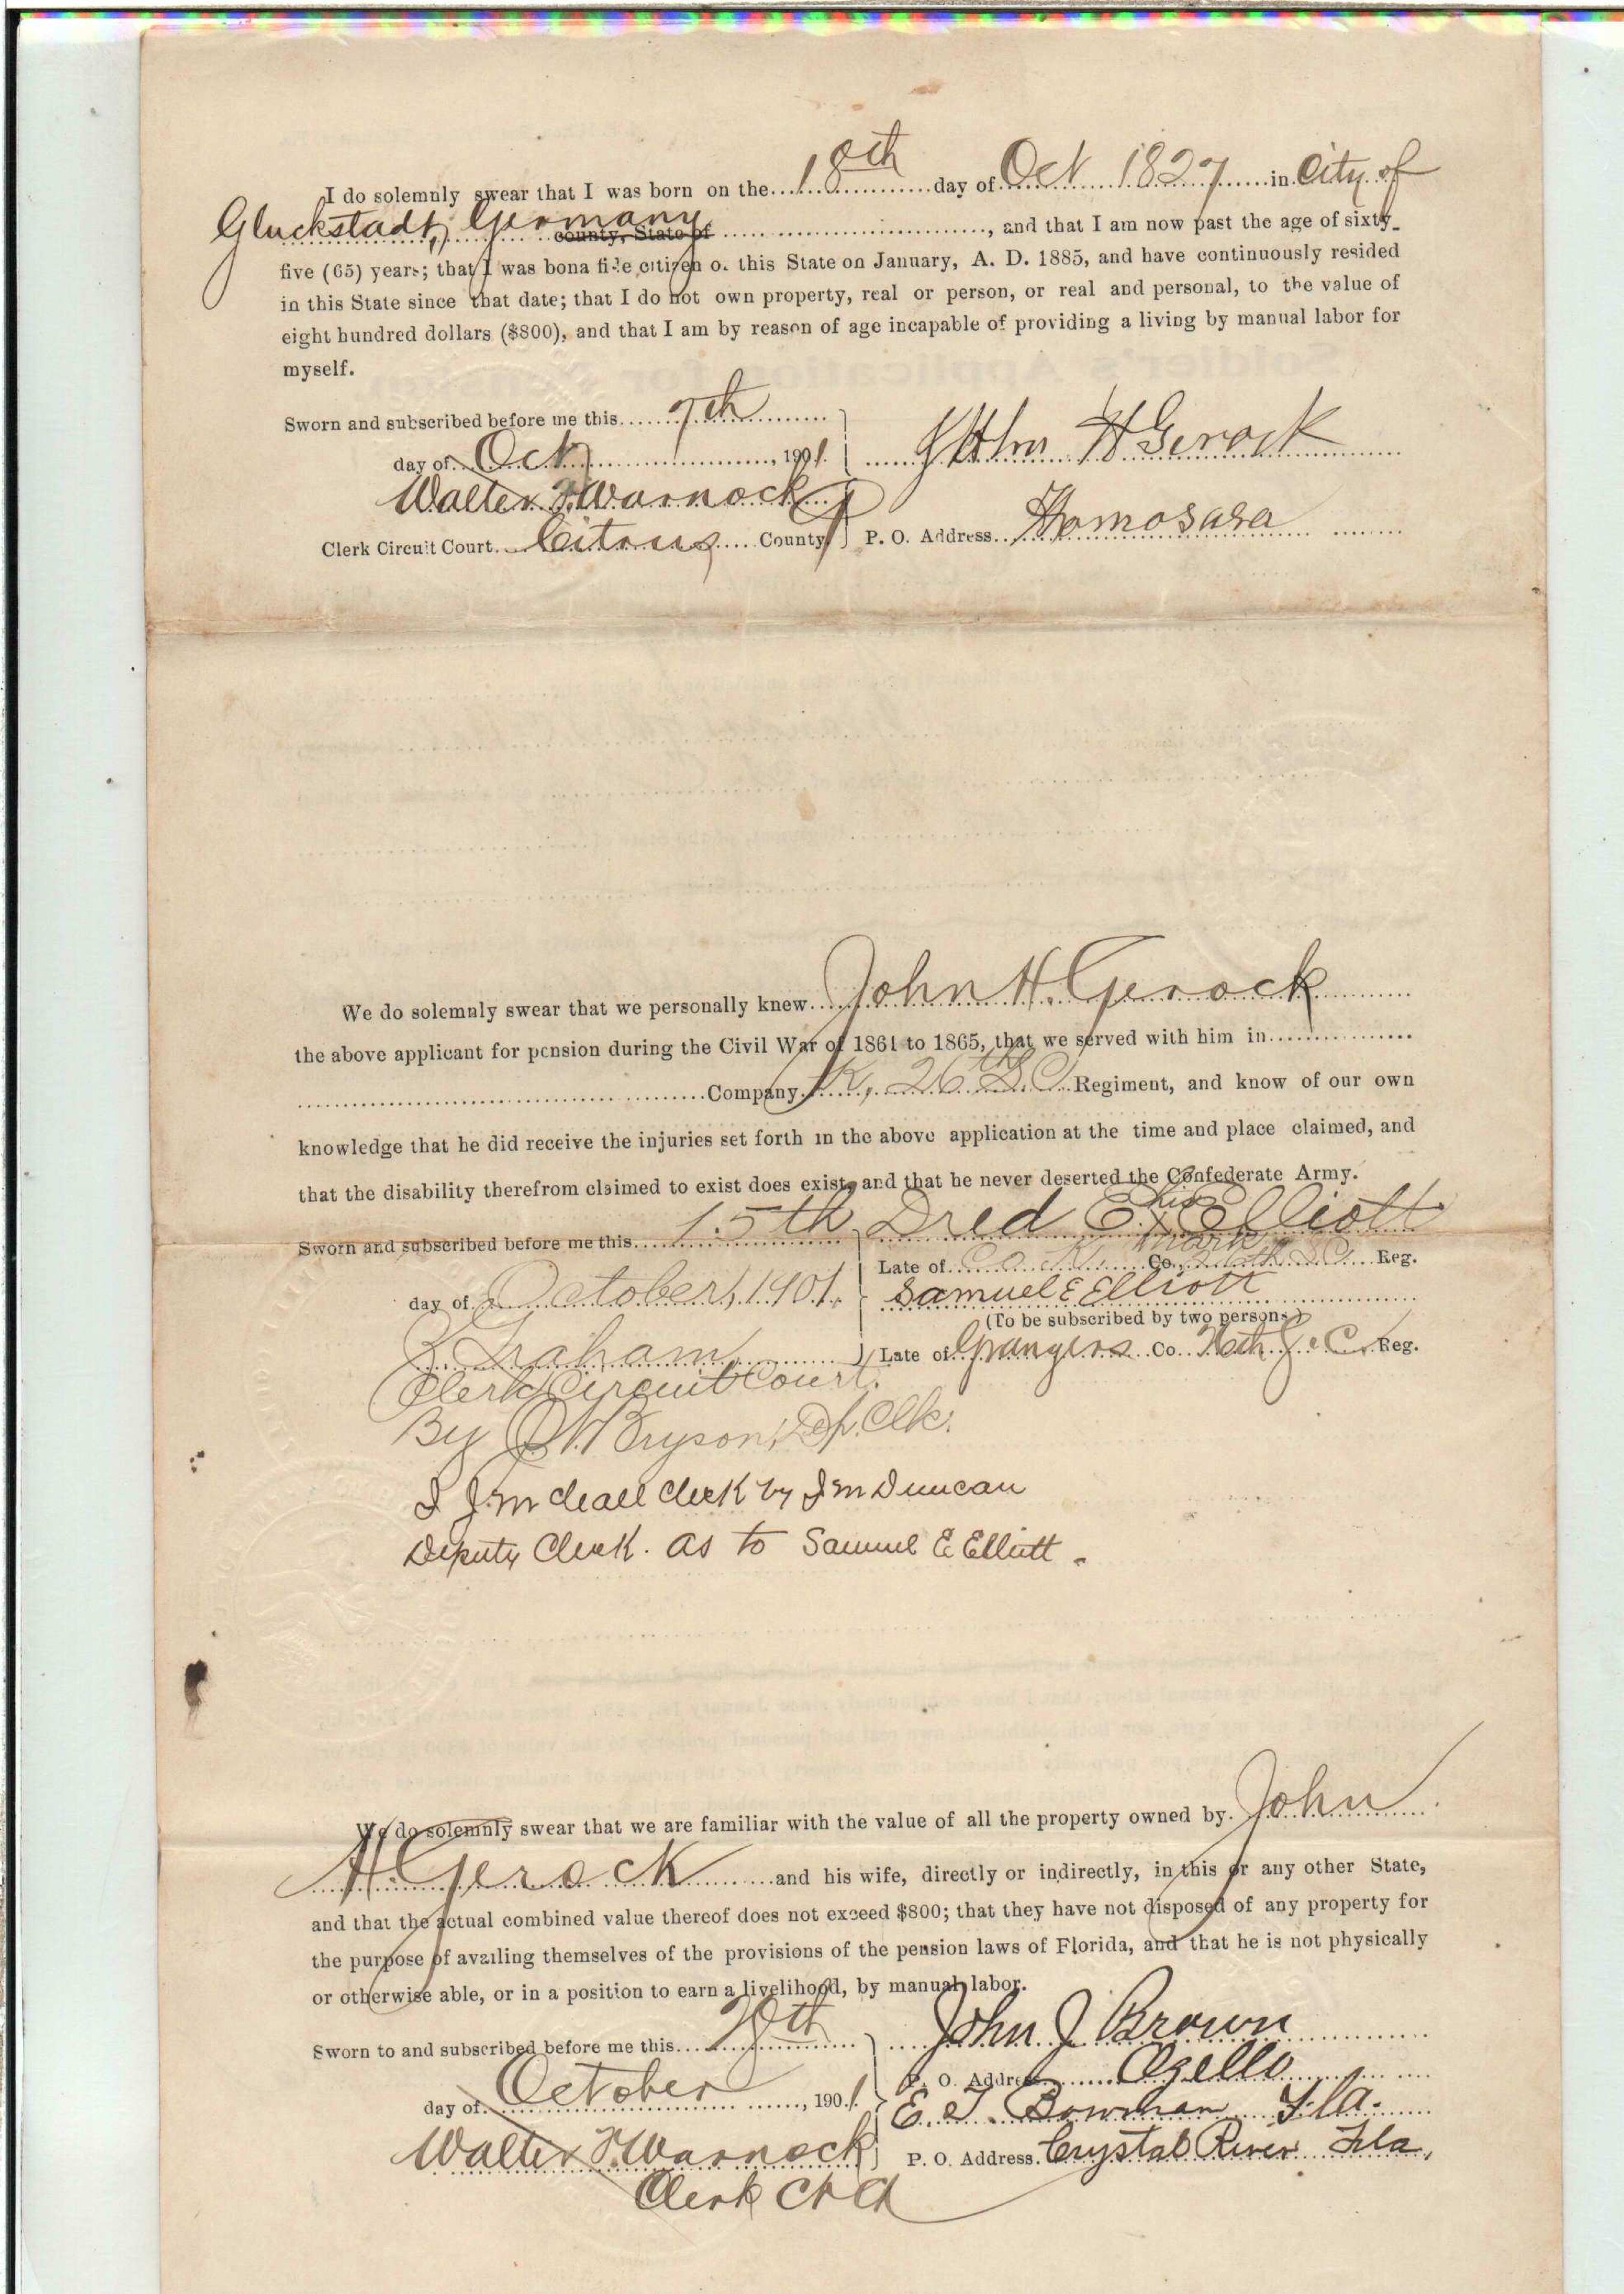 I do solemnly swear that I was born on the 18th day of Oct 1827 in City of
Gluckstadt, Germany county, State of ............, and that I am now past the age of sixty-
five (65) years; that I was bona fide citizen of this State on January, A. D. 1885, and have continuously resided
in this State since that date; that I do not own property, real or person, or real and personal, to the value of
eight hundred dollars ($800), and that I am by reason of age incapable of providing a living by manual labor for
myself.
Sworn and subscribed before me this 7th
day of Oct, 1901. H Gerock
Walter Warnock
Clerk Circuit Court. Citrus County P. O. Address Homosasa
We do solemnly swear that we personally knew John H. Gerock
the above applicant for pension during the Civil War of 1861 to 1865, that we served with him in
Company K, 26th S C Regiment, and know of our own
knowledge that he did receive the injuries set forth in the above application at the time and place claimed, and
that the disability therefrom claimed to exist does exist, and that he never deserted the Confederate Army.
Sworn and subscribed before me this 15th Dred E his x mark Elliott
Late of Co K, Co., 26th SC Reg.
day of October, 1901. Samuel E Elliott
(To be subscribed by two persons)
Graham Late of Grangers Co 26th S. C. Reg.
Clerk Circuit Court.
By Bryson, Dep. Clk.
J. M Clerk by J M Duncan
Deputy Clerk. as to Samuel E Elliott.
We do solemnly swear that we are familiar with the value of all the property owned by John
H. Gerock and his wife, directly or indirectly, in this or any other State,
and that the actual combined value thereof does not exceed $800; that they have not disposed of any property for
the purpose of availing themselves of the provisions of the pension laws of Florida, and that he is not physically
or otherwise able, or in a position to earn a livelihood, by manual labor.
Sworn to and subscribed before me this 28th John J Brown
P. O. Address Ozello
day of October, 1901. E. T. Bowman Fla.
Walter Warnock P. O. Address. Crystal River Fla,
Clerk Ct Ct